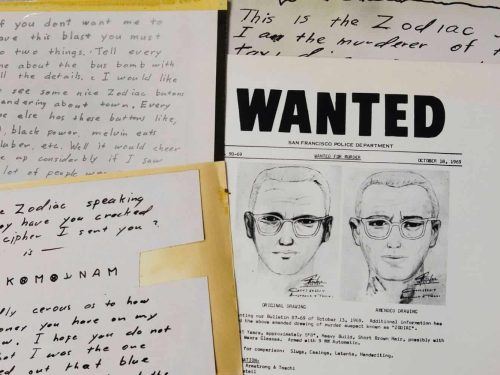 f you don't want me to
ave this blast you must
o two things. Tell every
ne about the bus bomb with
ll the details. I would like
o see some nice Zodiac butons
andering about town. Every
ne else has these buttons like,
black power, melvin eats
laber, etc. Well it would cheer
e up considerbly if I saw
lot of people
This is the Zodiac
I am the murderer of the
e Zodiac speaking
y have you cracked
cipher I sent you?
is —
lly cerous as to how
oney you have on my
w. I hope you do not
at I was the one
ed out that blue
WANTED
SAN FRANCISCO POLICE DEPARTMENT
90-69 WANTED FOR MURDER OCTOBER 18, 1969
ORIGINAL DRAWING AMENDED DRAWING
ting our Bulletin 87-69 of October 13, 1969. Additional information has
ed the above amended drawing of murder suspect known as "ZODIAC".
Years, approximately 5'8", Heavy Build, Short Brown Hair, possibly with
Wears Glasses. Armed with 9 MM Automatic.
for comparison: Slugs, Casings, Latents, Handwriting.
ATION:
Armstrong & Toschi